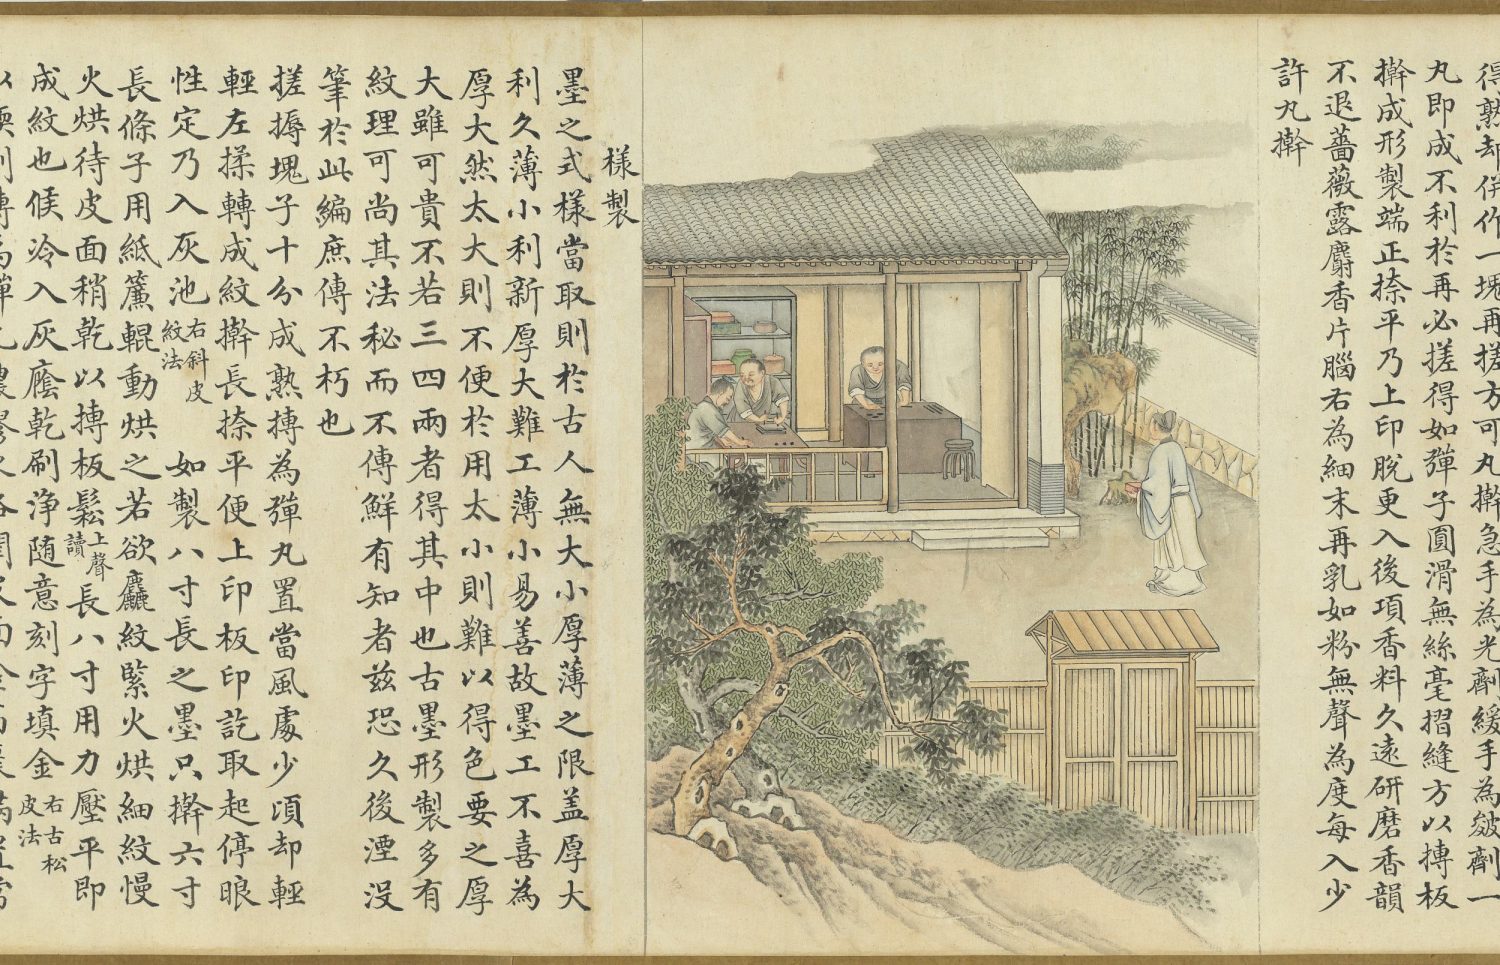 得熟却併作一塊再搓方可丸擀急手為光劑緩手為皴劑一
丸即成不利於再必搓得如彈子圓滑無絲毫摺縫方以摶板
擀成形製端正捺平乃上印脫更入後項香料久遠研磨香韻
不退薔薇露麝香片腦右為細末再乳如粉無聲為度每入少
許丸擀
樣製
墨之式樣當取則於古人無大小厚薄之限盖厚大
利久薄小利新厚大難工薄小易善故墨工不喜為
厚大然太大則不便於用太小則難以得色要之厚
大雖可貴不若三四兩者得其中也古墨形製多有
紋理可尚其法秘而不傳鮮有知者兹恐久後湮没
筆於此編庶傳不朽也
搓搙塊子十分成熟摶為彈丸置當風處少頃却輕
輕左揉轉成紋擀長捺平便上印板印訖取起停㫰
性定乃入灰池右斜皮紋法如製八寸長之墨只擀六寸
長條子用紙簾輥動烘之若欲麤紋緊火烘細紋慢
火烘待皮面稍乾以摶板鬆上聲讀長八寸用力壓平即
成紋也候冷入灰廕乾刷浄随意刻字填金右古松皮法